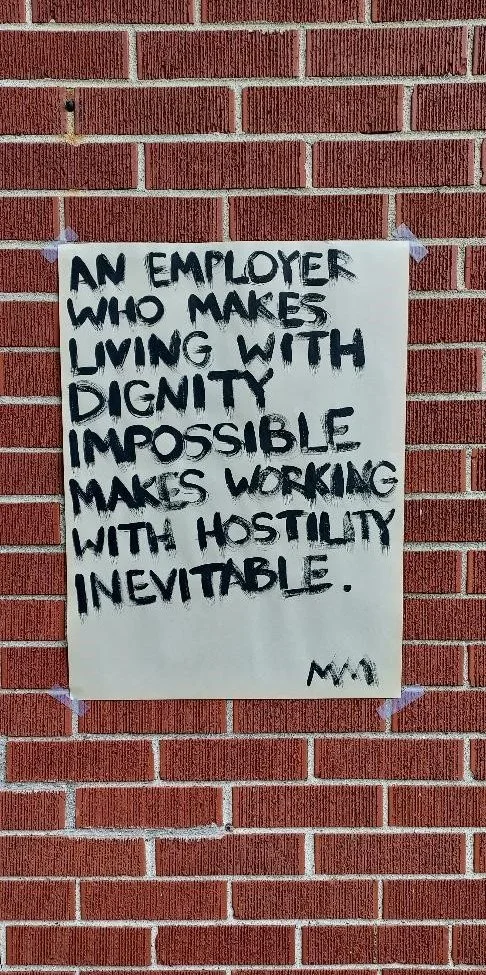 AN EMPLOYER
WHO MAKES
LIVING WITH
DIGNITY
IMPOSSIBLE
MAKES WORKING
WITH HOSTILITY
INEVITABLE.
MM